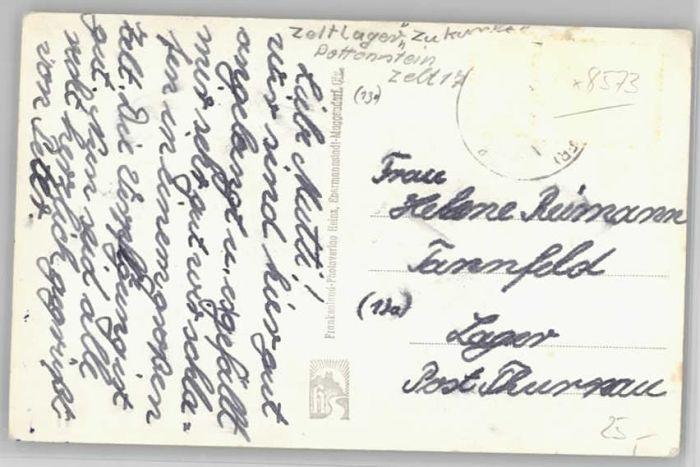 Zeltlager „Zukunft“
Pottenstein
Zelt 17
(13a)
Liebe Mutti!
wir sind hier gut
angelangt u. es gefällt
mir sehr gut wir schla=
fen in einem großen
Zelt. Die Verpflegung ist
gut. Nun seid alle
recht herzlich gegrüßt
von
Frankenland-Photoverlag Heinz, Ebermannstadt-Muggendorf, Ofr.
x8573
Frau
Helene Reimann
Tannfeld
(13a)
Lager
Post Thurnau
25,-